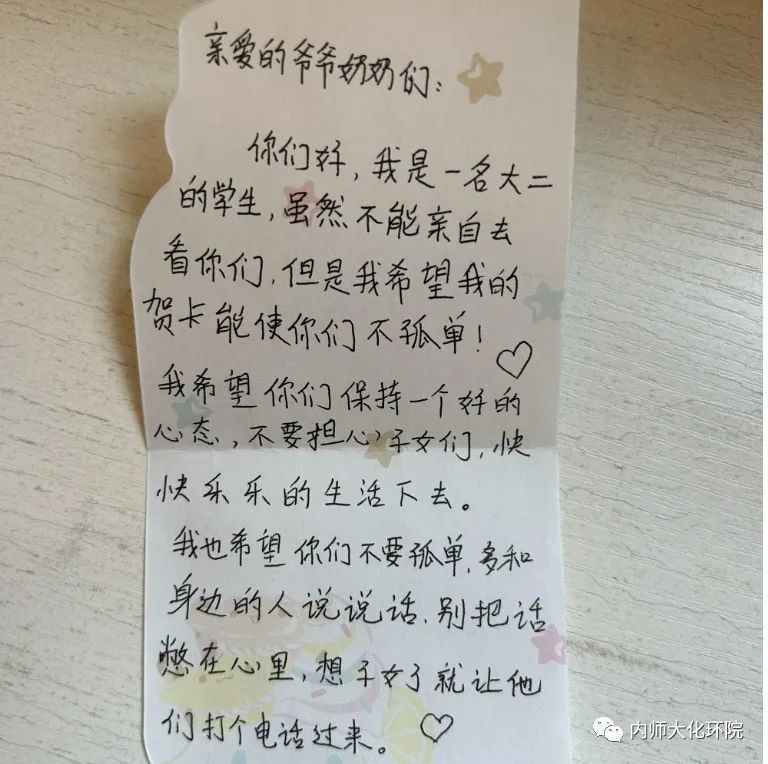 亲爱的爷爷奶奶们：
你们好，我是一名大二
的学生，虽然不能亲自去
看你们，但是我希望我的
贺卡能使你们不孤单！
我希望你们保持一个好的
心态，不要担心子女们，快
快乐乐的生活下去。
我也希望你们不要孤单，多和
身边的人说说话，别把话
憋在心里，想子女了就让他
们打个电话过来。
内师大化环院